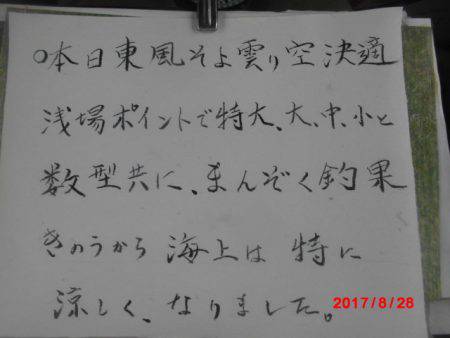 ○本日東風そよ雲り空決適
浅場ポイントで特大、大、中、小と
数型共に、まんぞく釣果
きのうから海上は特に
涼しく、なりました。
2017/8/28